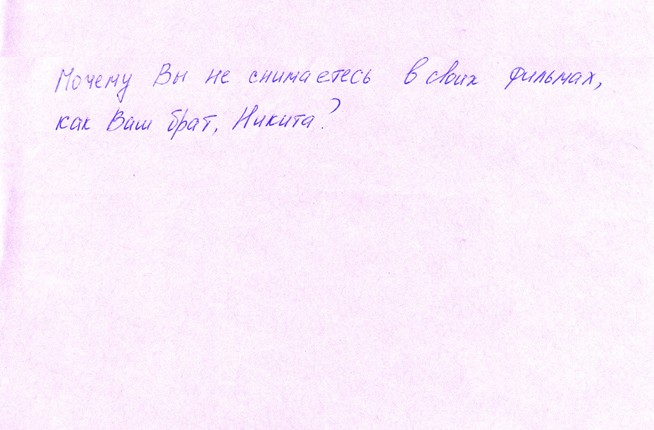 Почему Вы не снимаетесь в своих фильмах,
как Ваш брат, Никита?